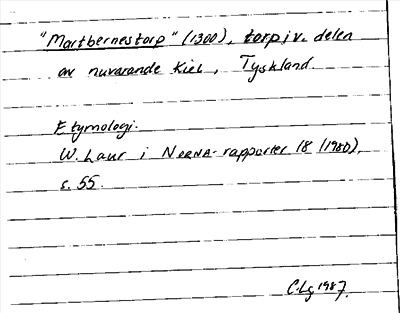 "Martbernestorp" (1300), torp i v. delen
av nuvarande Kiel, Tyskland.
Etymologi.
W. Laur i NORNA-rapporter 18 (1980),
s. 55.
C.Lg 1987.